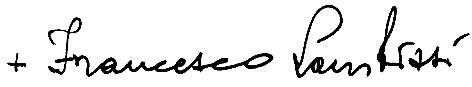 + Francesco Lambiasi